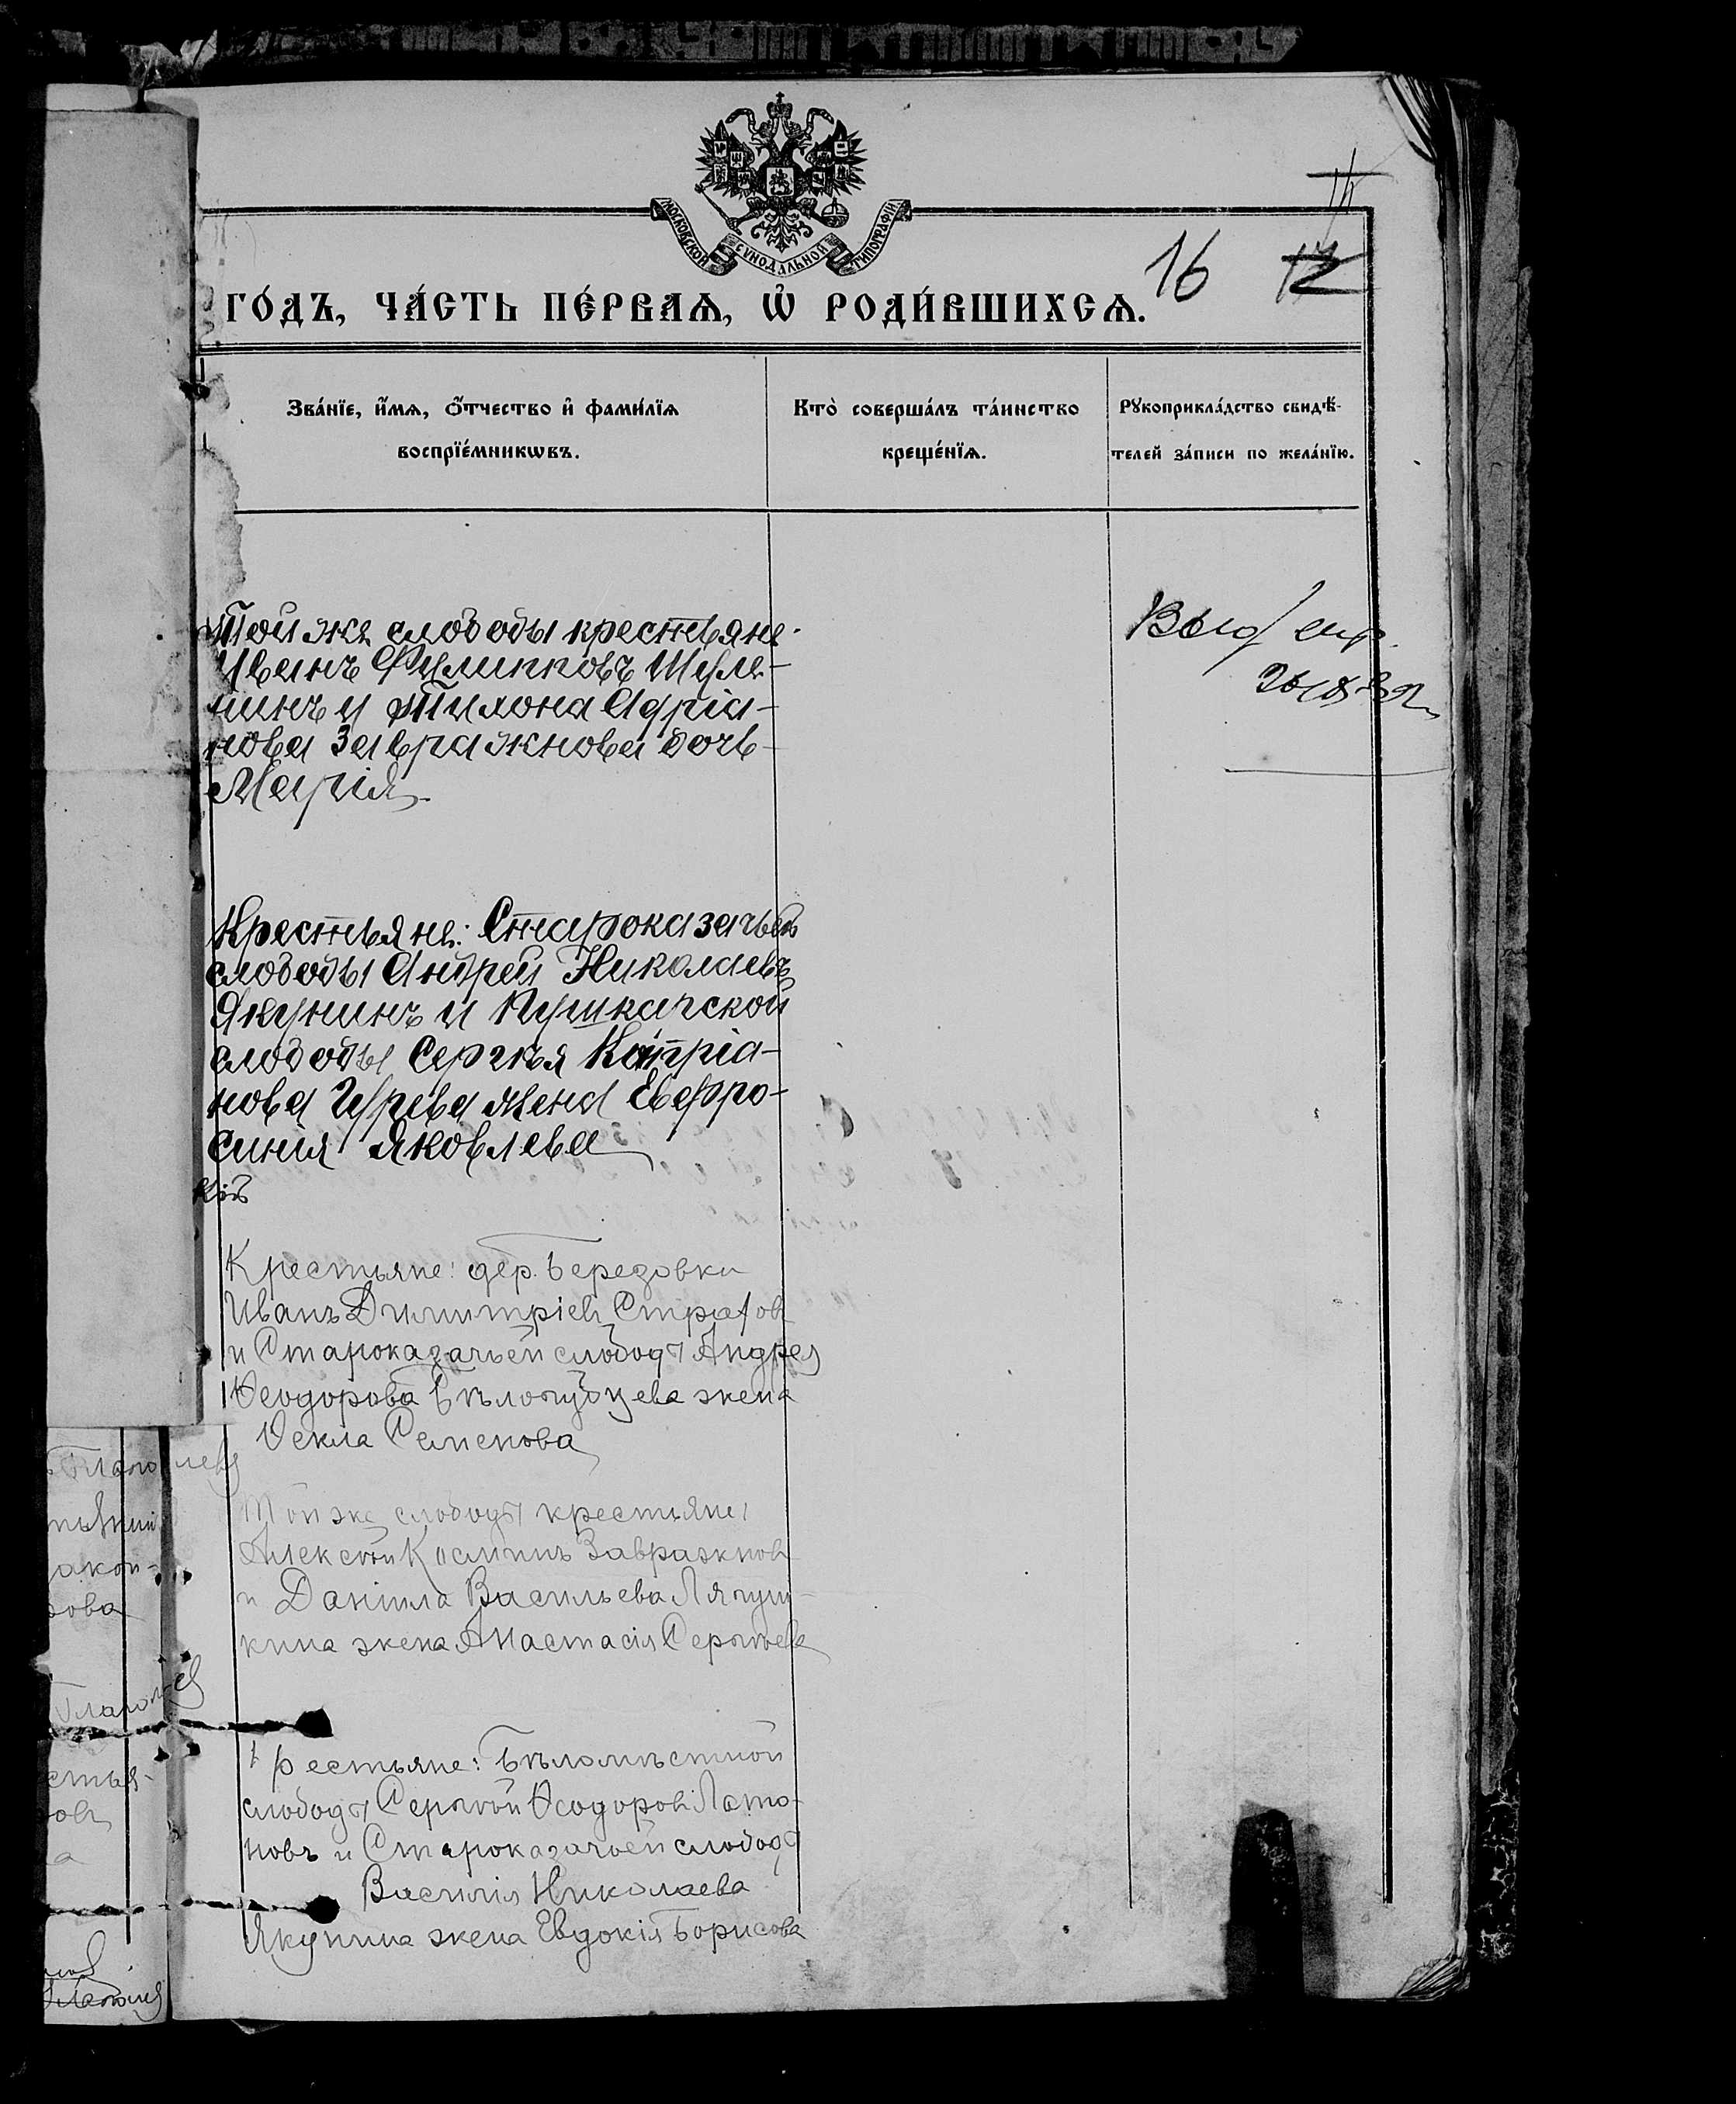 МОСКОВСКОЙ СѴНОДАЛЬНОЙ ТИПОГРАФІИ
16
ГО́ДЪ, ЧА́СТЬ ПЕ́РВАѦ, Ѡ҆ РОДИ́ВШИХСѦ.
Зва́нїе, и҆́мѧ, ѻ҆́тчество и҆ фами́лїѧ
воспрїе́мникѡвъ.
Кто̀ соверша́лъ та́инство
креще́нїѧ.
Рꙋкоприкла́дство свидѣ́-
телей за́писи по жела́нїю.
Той же слободы крестьяне
Иванъ Филипповъ Шуле-
нинъ и Тихона Адріа-
нова Завражнова дочь
Марія
Крестьяне: Староказачьей
слободы Андрей Николаевъ
Якунинъ и Пушкарской
слободы Сергѣя Кипріа-
нова Гурева жена Евфро-
синія Яковлева
кій
Крестьяне: дер. Березовки
Иванъ Димитріевъ Страховъ
и Староказачьей слободы Андрея
Ѳеодорова жена
Ѳекла Семенова
Той же слободы крестьяне:
Алексѣй Косминъ Завражновъ
и Даніила Васильева Лягуш-
кина жена Анастасія Сергѣева
Крестьяне: Бѣломѣстной
слободы Сергѣй Ѳеодоровъ Лато-
новъ и Староказачьей слободы
Василія Николаева
Якунина жена Евдокія Борисова